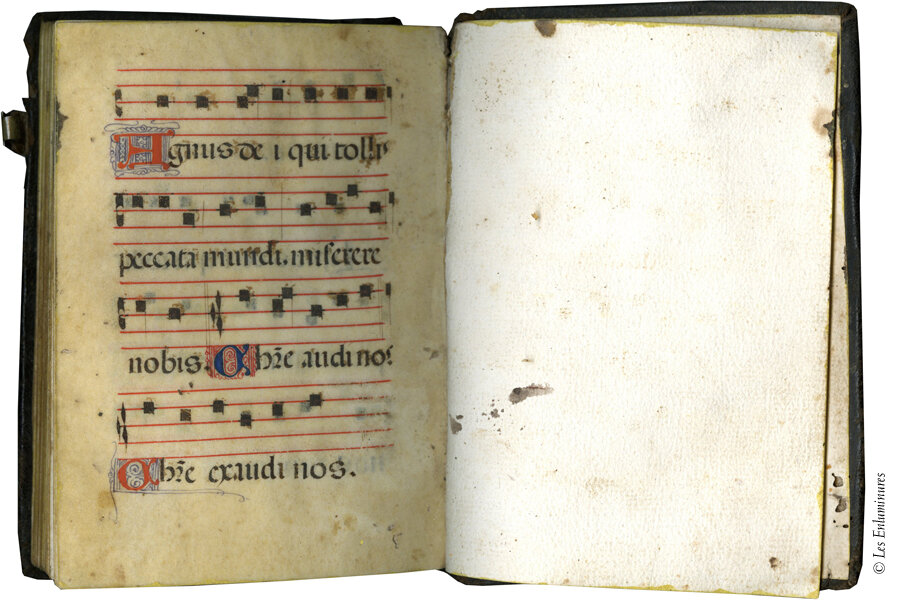 Agnus de i qui tollis
peccata mundi. miserere
nobis. Chr̄e audi nos
Chr̄e exaudi nos.
© Les Enluminures